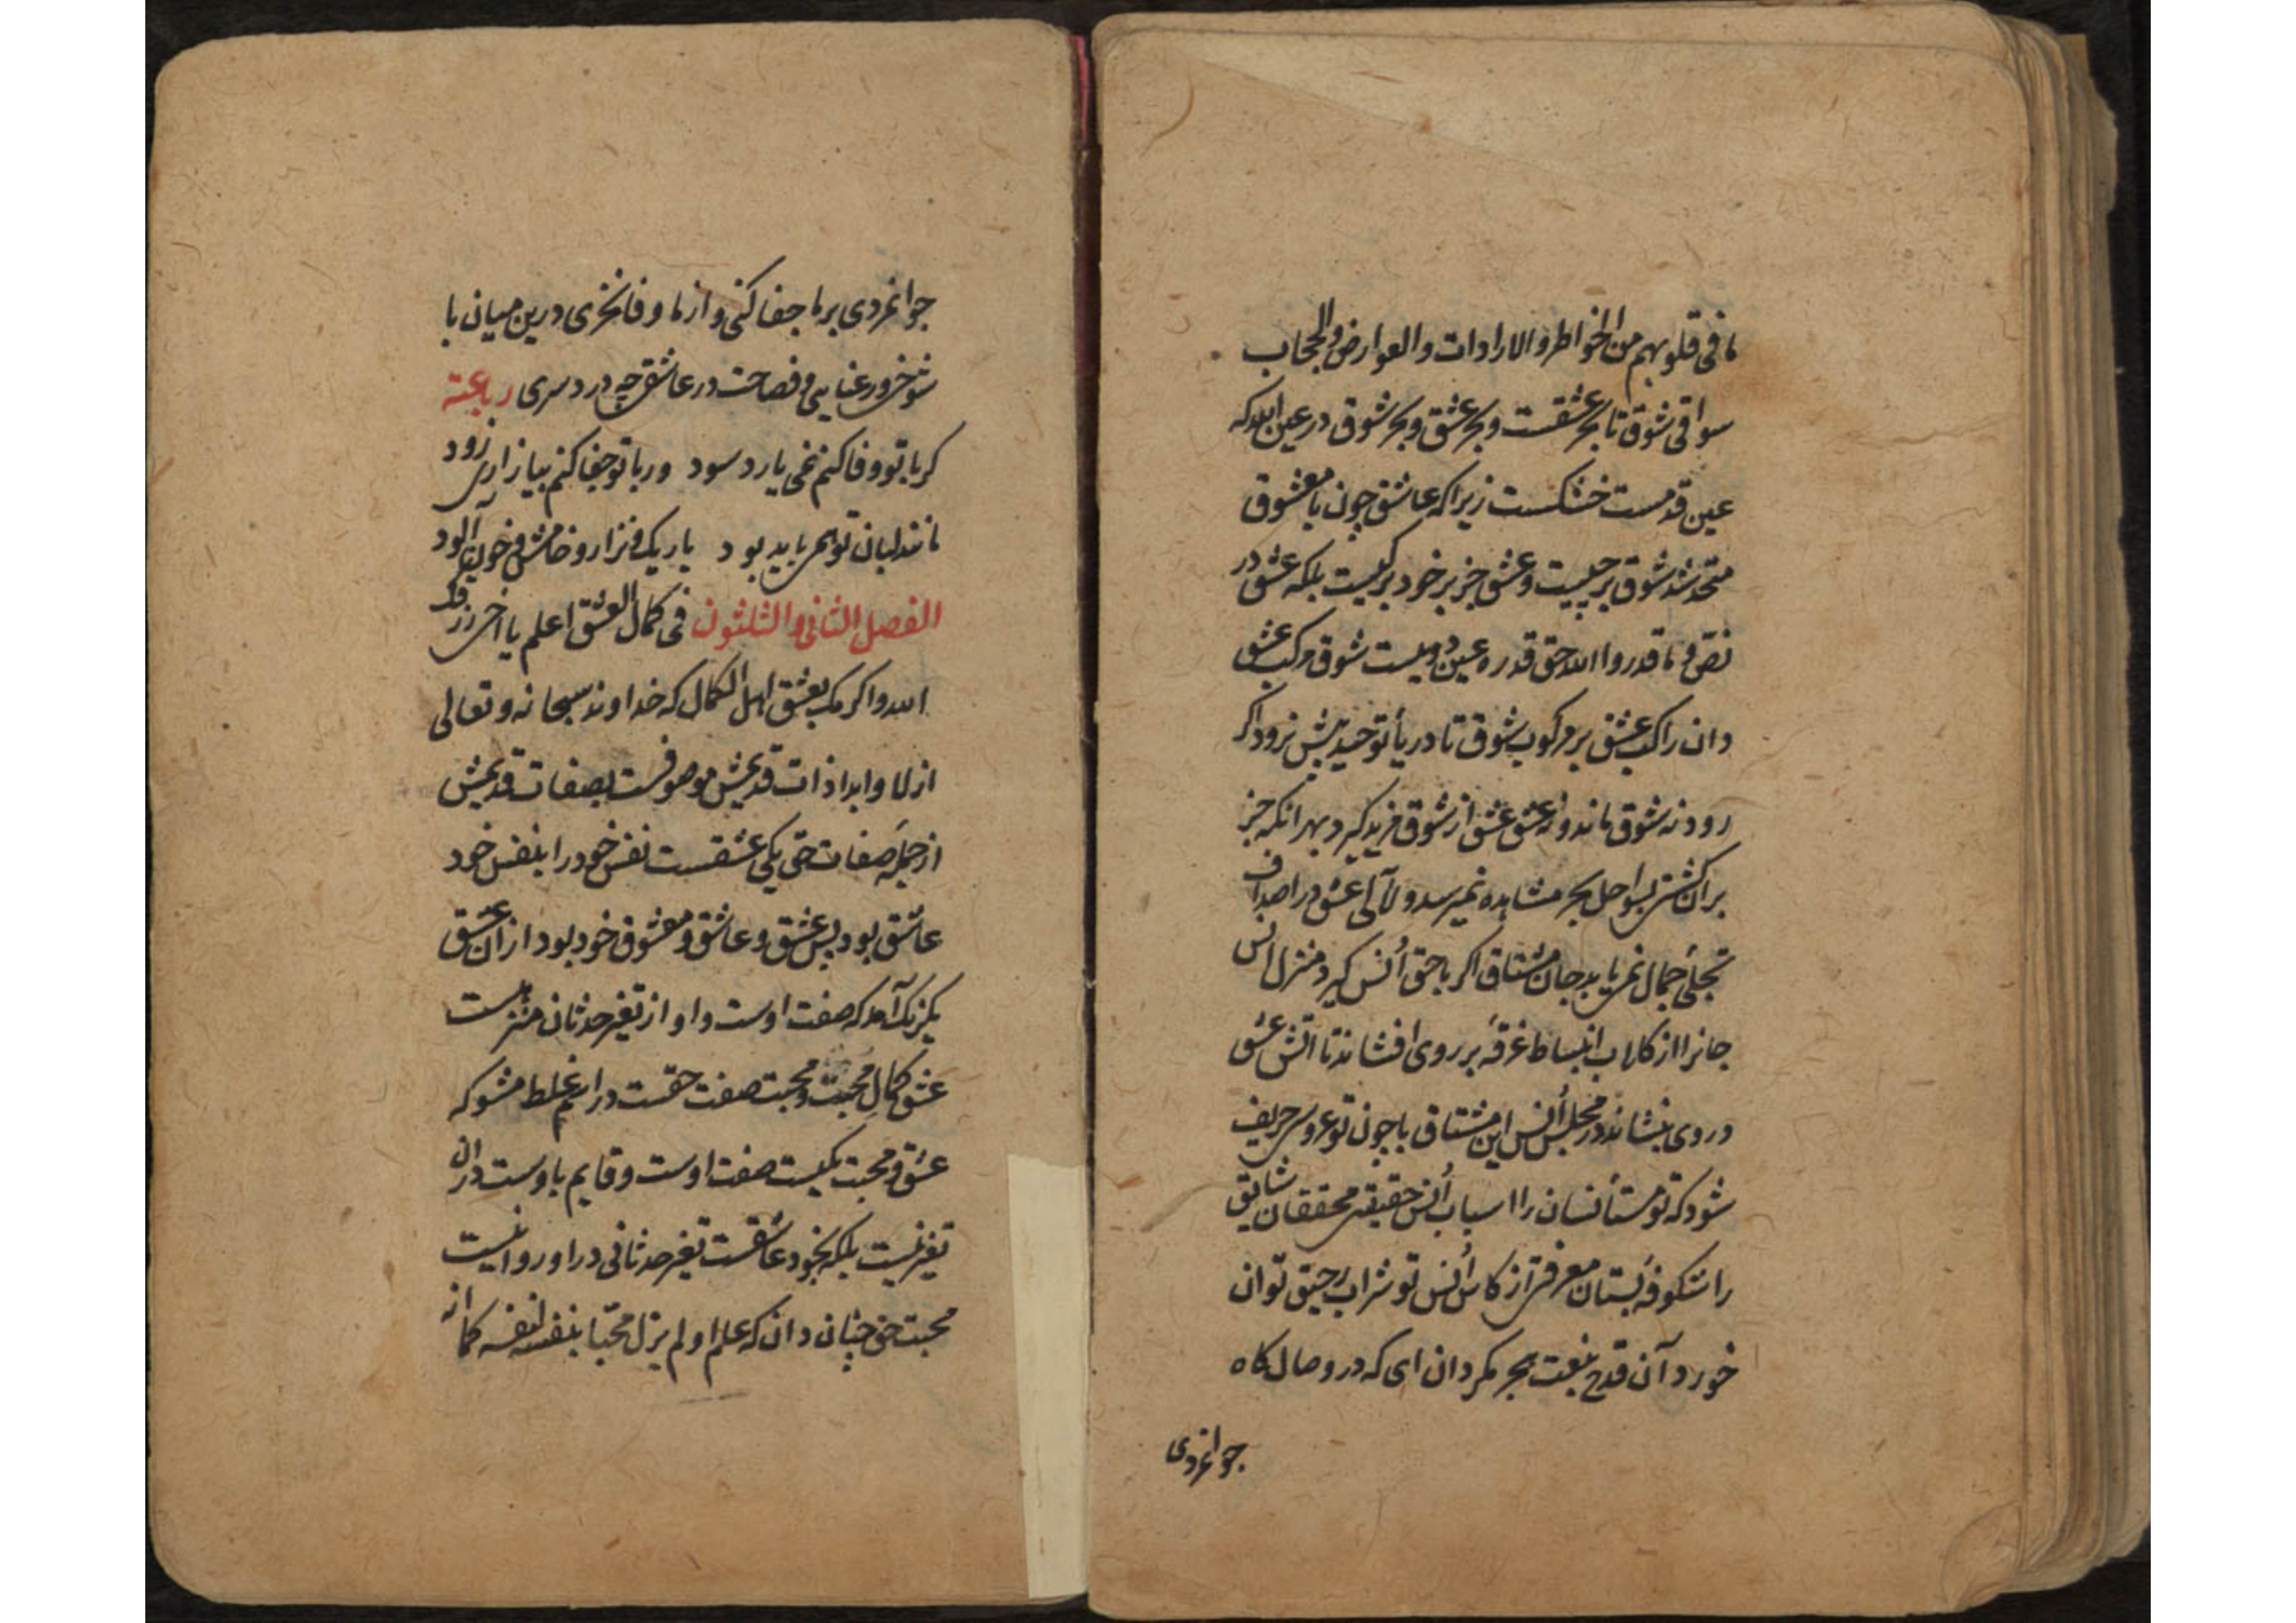 ما فی قلوبهم من الخواطر والارادات والعوارض والحجاب
سواقی شوق تا بحر عشقست وبحر عشق وبحر شوق در عین الله که
عین قدمست خشکست زیرا که عاشق چون با معشوق
متحد شد شوق بر چیست وعشق جز بر خود بر کیست بلکه عشق در
نص وما قدروا الله حق قدره عین دویست شوق مرکب عشق
دان راکب عشق بر مرکوب شوق تا دریا توحید بیش نرود اکر
رود نه شوق ماند ونه عشق عشق از شوق مزید کیرد بهر آنکه جز
بر آن کشتی بسواحل بحر مشاهده نمیرسد ولآلی عشق در اصداف
تجلی جمال نمی یابد جان مشتاق اکر با حق أنس کیرد منزل انس
جانرا از کلاب انبساط غرفه بر روی افشاند تا آتش عشق
در وی بنشاند در مجلس أنس این مشتاق با چون تو عروس حریف
شود که تو مستأنسان را اسباب أنس حقیقتی محققان شایق
را شکوفه بستان معرفتی از کاس أنس تو شراب رحیق توان
خورد آن قدح بنعت هجر مکردان ای که در وصال کاه
جوانمردی
جوانمردی بر ما جفا کنی و از ما وفا نخری درین میان با
شوخی ورعنایی وفصاحت در عاشقی چه دردسری رباعیة
کر با تو وفا کنم نمی یارد سود ور با تو جفا کنم بیازاری زود
مانند لبان تو همی باید بود باریک ونزار وخامش وخون آلود
الفصل الثانی والثلثون فی کمال العشق اعلم یا اخی رزقک
الله واکرمک بعشق اهل الکمال که خداوند سبحانه وتعالی
ازلا وابدا ذات قدیمش موصوفست بصفات قدیمش
از جمله صفات حق یکی عشقست نفس خود را بنفس خود
عاشق بود پس عشق وعاشق ومعشوق خود بود از آن عشق
یکرنک آمد که صفت اوست واو از تغیر حدثان منزهست
عشق کمال محبت ومحبت صفت حقست در اسم غلط مشو که
عشق ومحبت یکیست صفت اوست وقایم باوست در آن
تغیر نیست بلکه بخود عاشقست تغیر حدثانی در او روا نیست
محبت حق چنان دان که علم او لم یزل محبا بنفسه لنفسه کما انه